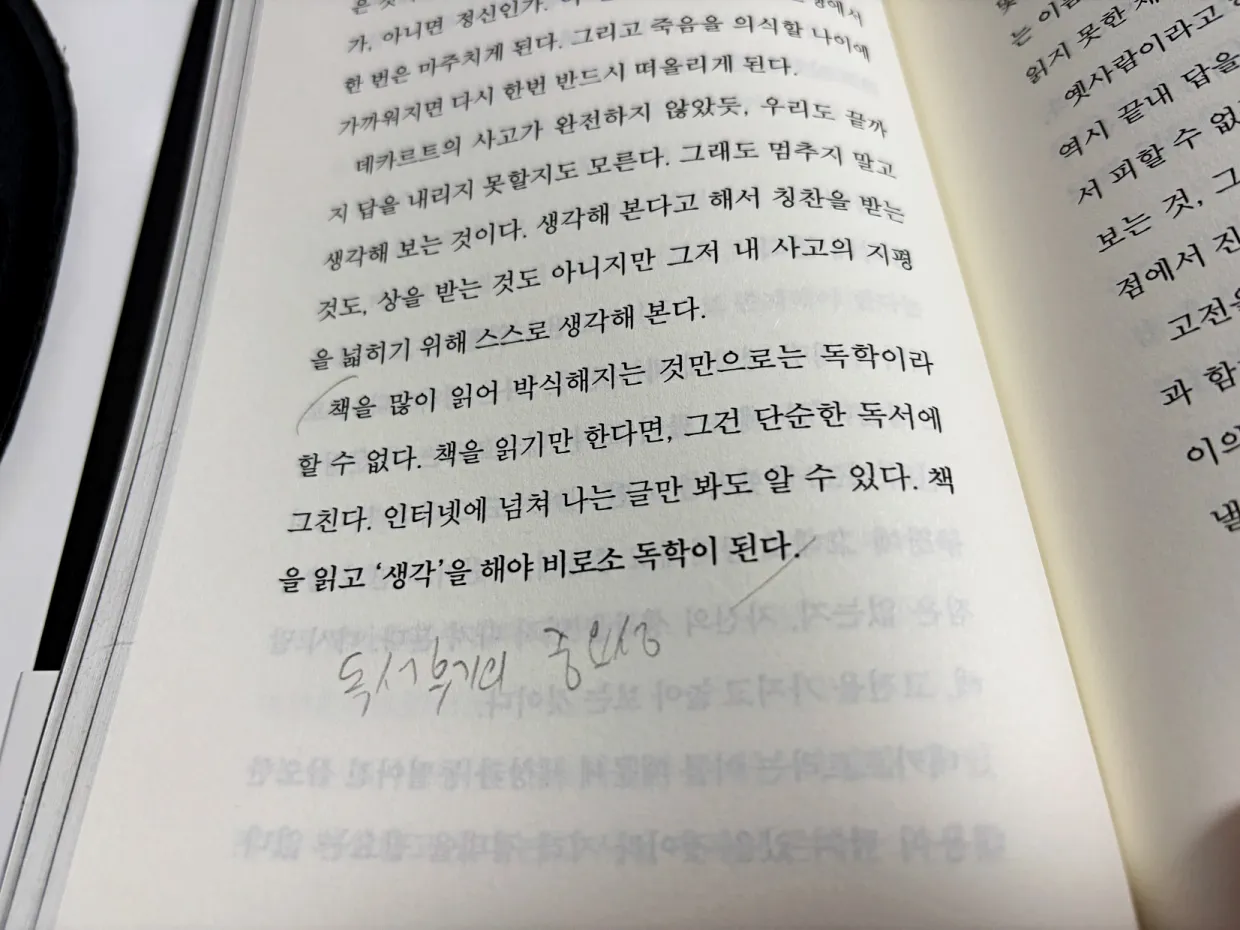 가, 아니면 정신인가.
한 번은 마주치게 된다. 그리고 죽음을 의식할 나이에
가까워지면 다시 한번 반드시 떠올리게 된다.
데카르트의 사고가 완전하지 않았듯, 우리도 끝까
지 답을 내리지 못할지도 모른다. 그래도 멈추지 말고
생각해 보는 것이다. 생각해 본다고 해서 칭찬을 받는
것도, 상을 받는 것도 아니지만 그저 내 사고의 지평
을 넓히기 위해 스스로 생각해 본다.
책을 많이 읽어 박식해지는 것만으로는 독학이라
할 수 없다. 책을 읽기만 한다면, 그건 단순한 독서에
그친다. 인터넷에 넘쳐 나는 글만 봐도 알 수 있다. 책
을 읽고 ‘생각’을 해야 비로소 독학이 된다.
독서후기의 중요성
는
읽지 못한
옛사람이라고
역시 끝내 답을
서 피할 수 없
보는 것, 그
점에서 진
고전을
과 함
이의
낼